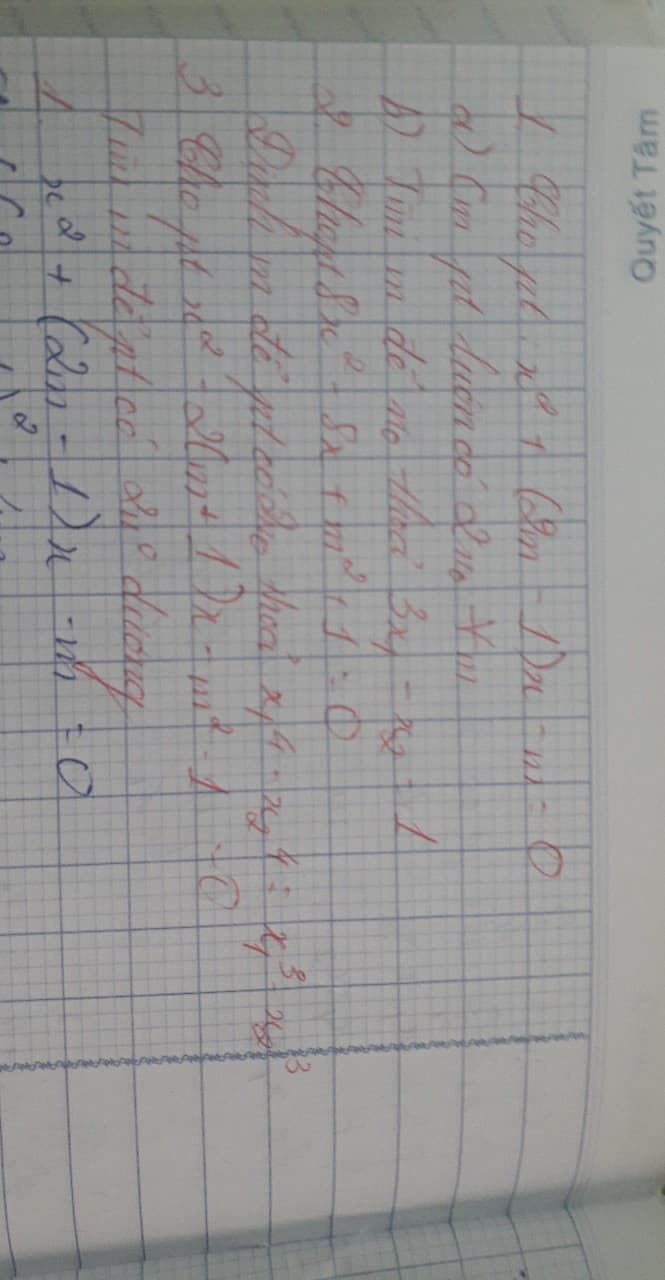 Quyết Tâm
1 Cho pt: x² + (2m - 1)x - m = 0
a) Cm pt luôn có 2no ∀m
b) Tìm m để no thoả 3x₁ - x₂ = 1
2 Cho pt 8x² - 8x + m² + 1 = 0
Định m để pt có 2no thoả x₁⁴ - x₂⁴ = x₁³ - x₂³
3 Cho pt x² - 2(m + 1)x - m² - 1 = 0
Tìm m để pt có 2no dương
1 x² + (2m - 1)x - m = 0